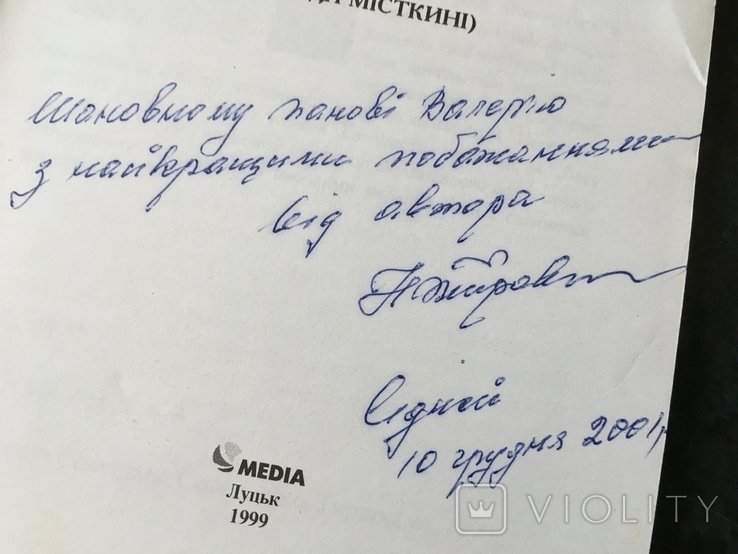 МІСТКИНІ)
Шановному панові Валерію
з найкращими побажаннями
від автора
Сідней
10 грудня 2001 р.
MEDIA
Луцьк
1999
VIOLITY